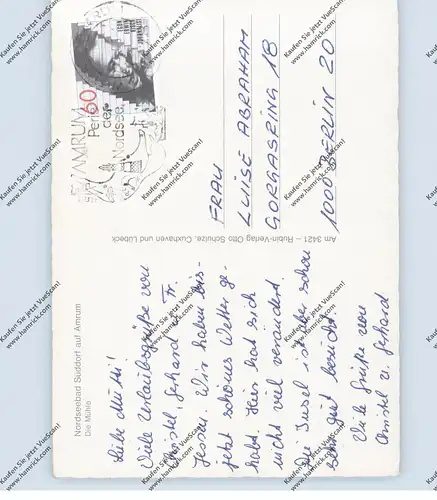 Nordseebad Süddorf auf Amrum
Die Mühle
Liebe Mutti!
Viele Urlaubsgrüße von
Christel, Gerhard u. Fr.
Jessen. Wir haben bis-
jetzt schönes Wetter ge-
habt. Hier hat sich
nicht viel verändert.
Die Insel ist aber schon
sehr gut besucht
Viele Grüße von
Christel u. Gerhard
Am 3421 – Rubin-Verlag Otto Schulze, Cuxhaven und Lübeck
AMRUM
Perle
der
Nordsee
60
FRAU
LUISE ABRAHAM
GORGASRING 18
1000 BERLIN 20
Kaufen Sie jetzt VueScan!
www.hamrick.com